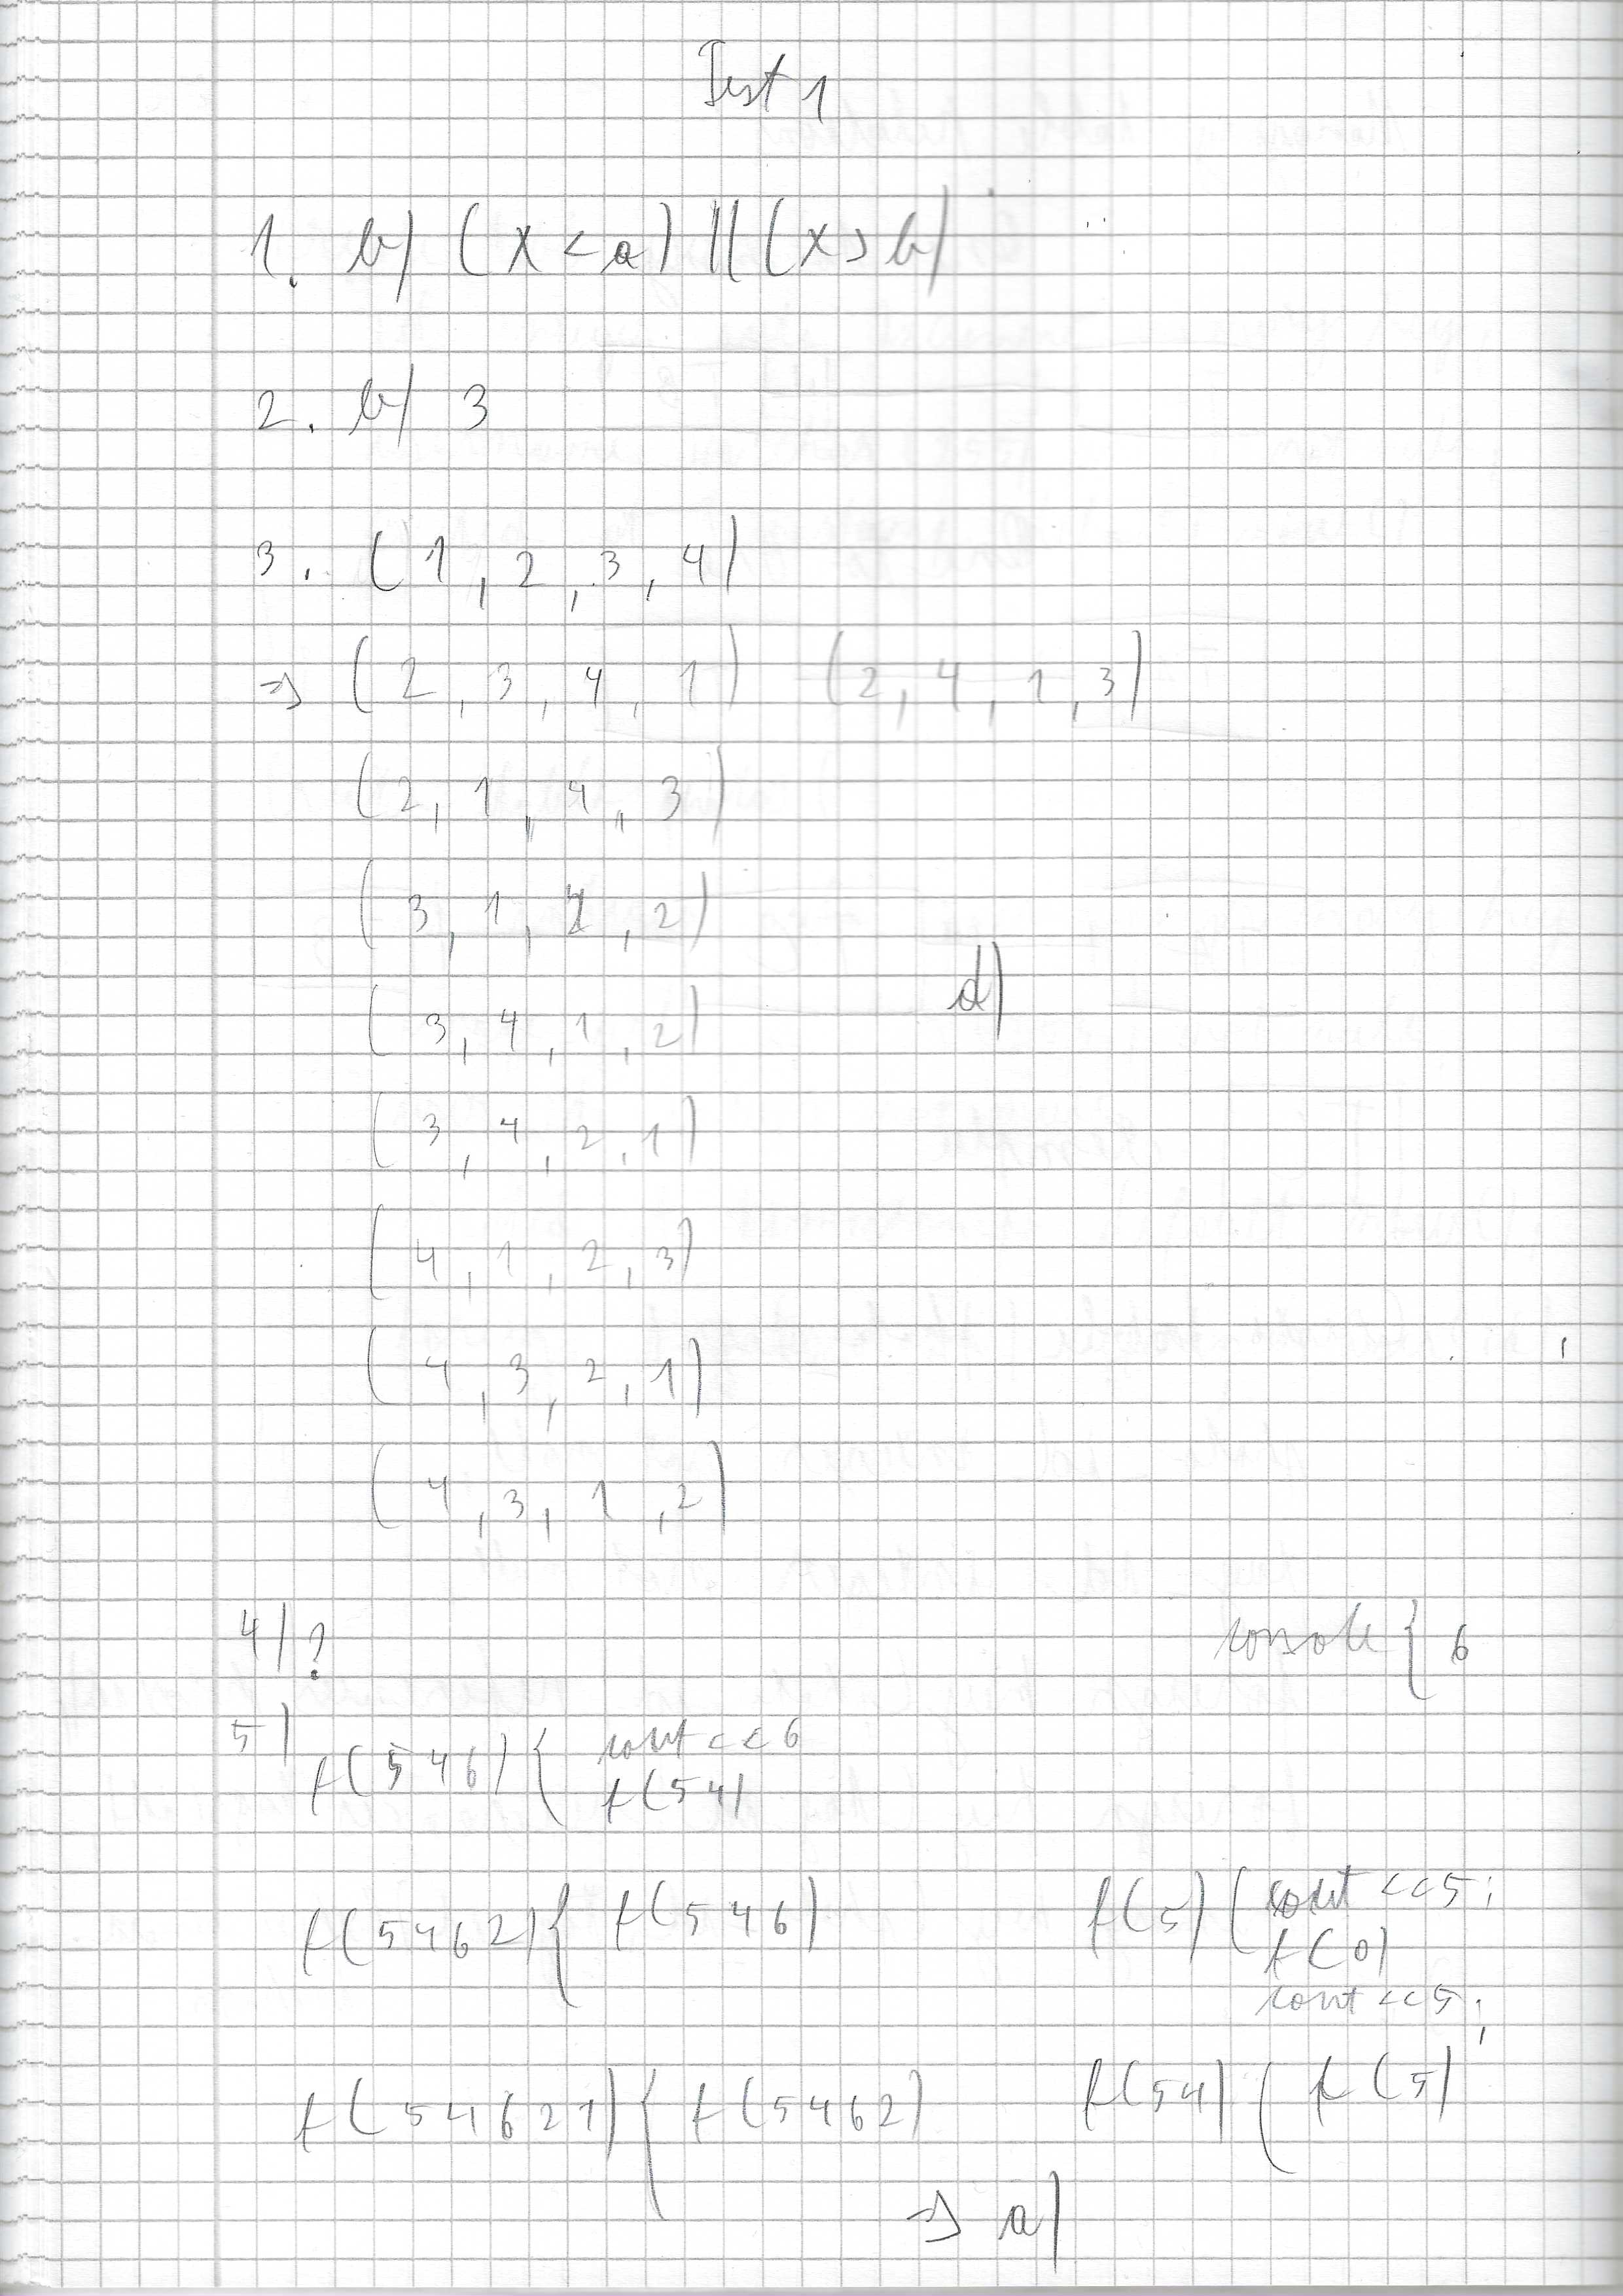 Test 1
1. b) (x < a) || (x > b)
2. b) 3
3. (1, 2, 3, 4)
⇒ (2, 3, 4, 1) (2, 4, 1, 3)
(2, 1, 4, 3)
(3, 1, 4, 2)
d)
(3, 4, 1, 2)
(3, 4, 2, 1)
(4, 1, 2, 3)
(4, 3, 2, 1)
(4, 3, 1, 2)
4) ?
console { 6
5) f(546) { cout << 6
f(54)
f(5462) { f(546)
f(5) ( cout << 5;
f(0)
cout << 5;
f(54621) { f(5462)
f(54) ( f(5)
⇒ a)